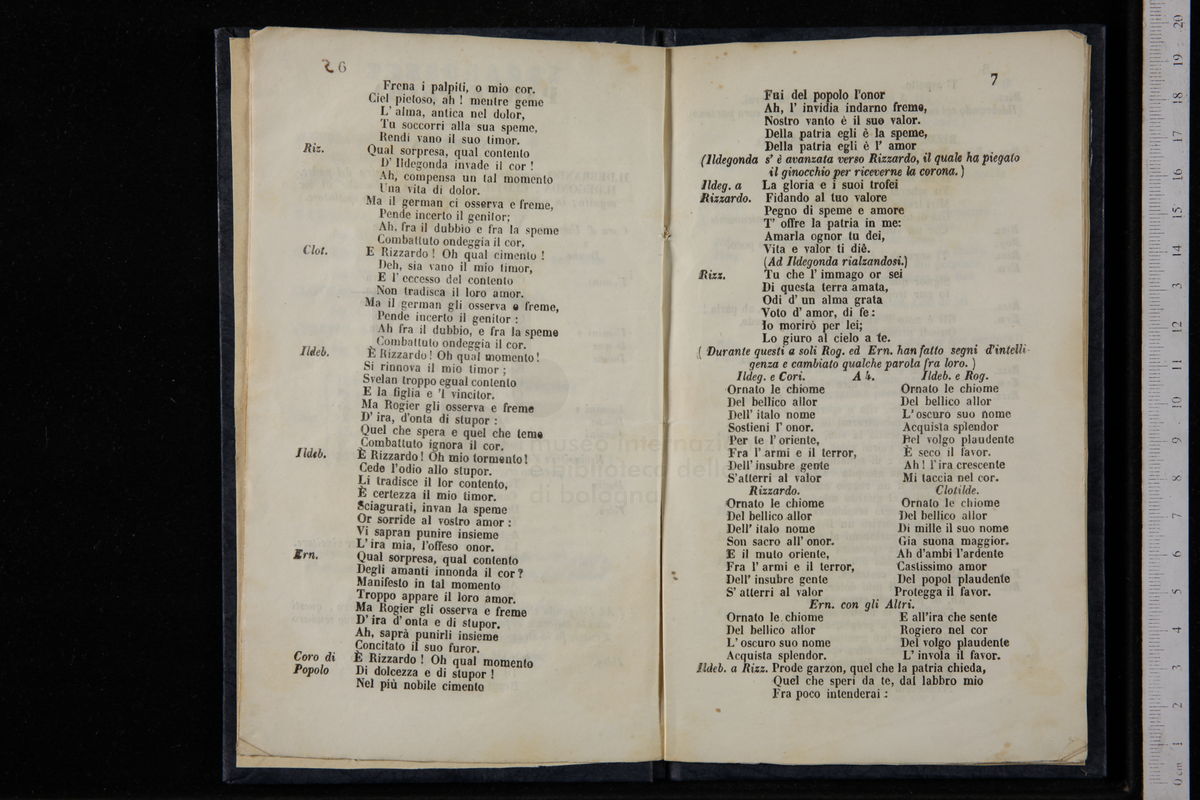 26
Frena i palpiti, o mio cor.
Ciel pietoso, ah ! mentre geme
L' alma, antica nel dolor,
Tu soccorri alla sua speme,
Rendi vano il suo timor.
Riz. Qual sorpresa, qual contento
D' Ildegonda invade il cor !
Ah, compensa un tal momento
Una vita di dolor.
Ma il german ci osserva e freme,
Pende incerto il genitor;
Ah, fra il dubbio e fra la speme
Combattuto ondeggia il cor,
Clot. E Rizzardo ! Oh qual cimento !
Deh, sia vano il mio timor,
E l' eccesso del contento
Non tradisca il loro amor.
Ma il german gli osserva e freme,
Pende incerto il genitor :
Ah fra il dubbio, e fra la speme
Combattuto ondeggia il cor.
Ildeb. È Rizzardo ! Oh qual momento !
Si rinnova il mio timor ;
Svelan troppo egual contento
E la figlia e 'l vincitor.
Ma Rogier gli osserva e freme
D' ira, d'onta di stupor :
Quel che spera e quel che teme
Combattuto ignora il cor.
Ildeb. È Rizzardo ! Oh mio tormento !
Cede l'odio allo stupor.
Li tradisce il lor contento,
È certezza il mio timor.
Sciagurati, invan la speme
Or sorride al vostro amor :
Vi sapran punire insieme
L' ira mia, l'offeso onor.
Ern. Qual sorpresa, qual contento
Degli amanti innonda il cor ?
Manifesto in tal momento
Troppo appare il loro amor.
Ma Rogier gli osserva e freme
D' ira d' onta e di stupor.
Ah, saprà punirli insieme
Concitato il suo furor.
Coro di È Rizzardo ! Oh qual momento
Popolo Di dolcezza e di stupor !
Nel più nobile cimento
7
Fui del popolo l'onor
Ah, l' invidia indarno freme,
Nostro vanto è il suo valor.
Della patria egli è la speme,
Della patria egli è l' amor
(Ildegonda s' è avanzata verso Rizzardo, il quale ha piegato
il ginocchio per riceverne la corona. )
Ildeg. a La gloria e i suoi trofei
Rizzardo. Fidando al tuo valore
Pegno di speme e amore
T' offre la patria in me:
Amarla ognor tu dei,
Vita e valor ti diè.
(Ad Ildegonda rialzandosi.)
Rizz. Tu che l' immago or sei
Di questa terra amata,
Odi d' un alma grata
Voto d' amor, di fe :
Io morirò per lei;
Lo giuro al cielo a te.
( Durante questi a soli Rog. ed Ern. han fatto segni d'intelli-
genza e cambiato qualche parola fra loro. )
Ildeg. e Cori. A 4. Ildeb. e Rog.
Ornato le chiome Ornato le chiome
Del bellico allor Del bellico allor
Dell' italo nome L' oscuro suo nome
Sostieni l' onor. Acquista splendor
Per te l' oriente, Del volgo plaudente
Fra l' armi e il terror, È seco il favor.
Dell' insubre gente Ah ! l' ira crescente
S' atterri al valor Mi taccia nel cor.
Rizzardo. Clotilde.
Ornato le chiome Ornato le chiome
Del bellico allor Del bellico allor
Dell' italo nome Di mille il suo nome
Son sacro all' onor. Gia suona maggior.
E il muto oriente, Ah d'ambi l'ardente
Fra l' armi e il terror, Castissimo amor
Dell' insubre gente Del popol plaudente
S' atterri al valor Protegga il favor.
Ern. con gli Altri.
Ornato le chiome E all'ira che sente
Del bellico allor Rogiero nel cor
L' oscuro suo nome Del volgo plaudente
Acquista splendor. L' invola il favor.
Ildeb. a Rizz. Prode garzon, quel che la patria chieda,
Quel che speri da te, dal labbro mio
Fra poco intenderai :
museo internazi
e biblioteca della
di bologna
0 cm 1 2 3 4 5 6 7 8 9 10 11 12 13 14 15 16 17 18 19 20